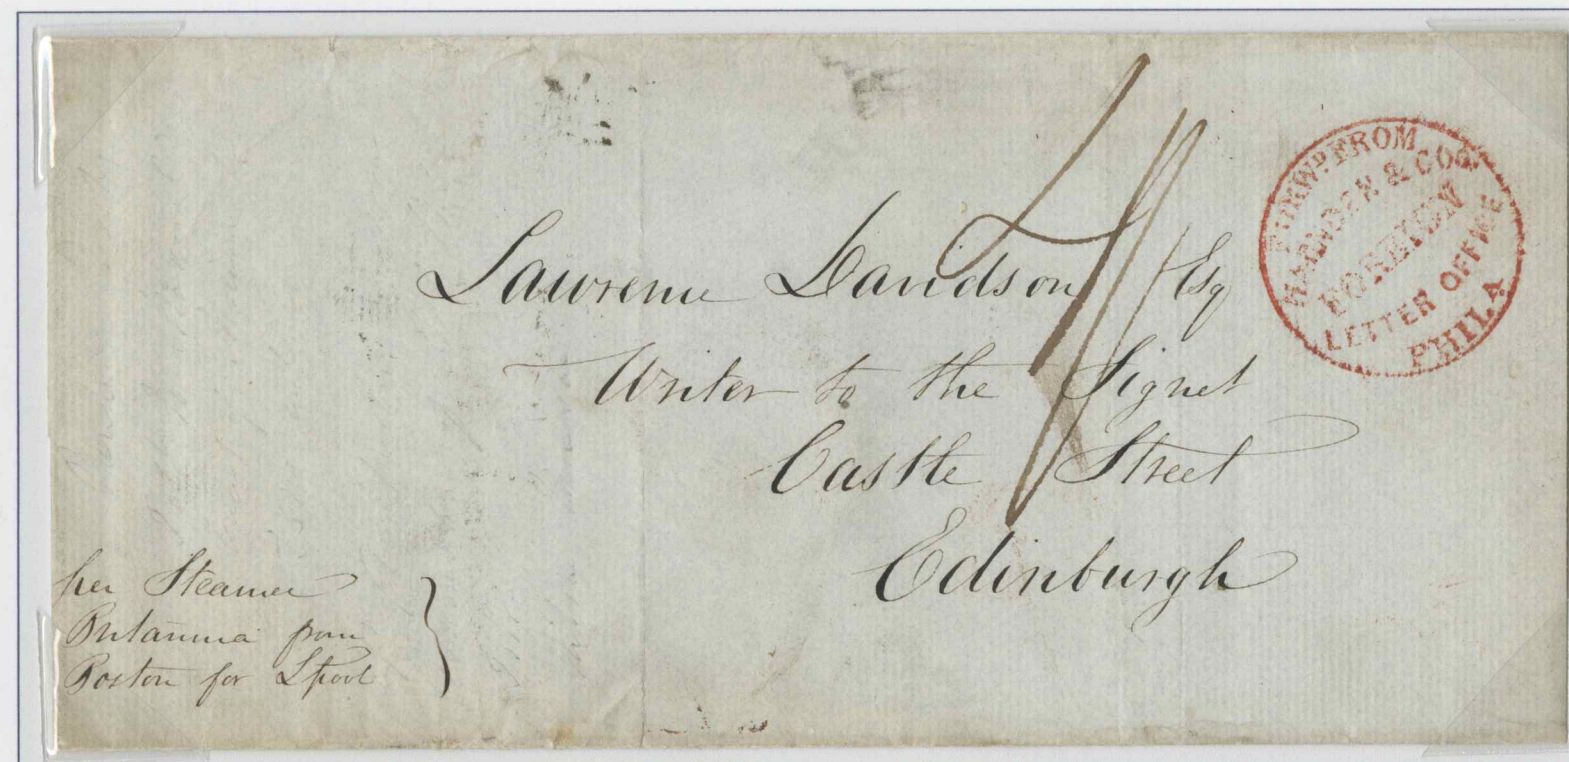 FORWD. FROM
HARNDEN & COS.
FOREIGN
LETTER OFFICE
PHILA
Lawrence Davidson Esq
Writer to the Signet
Castle Street
Edinburgh
per Steamer
Britannia from
Boston for Lpool